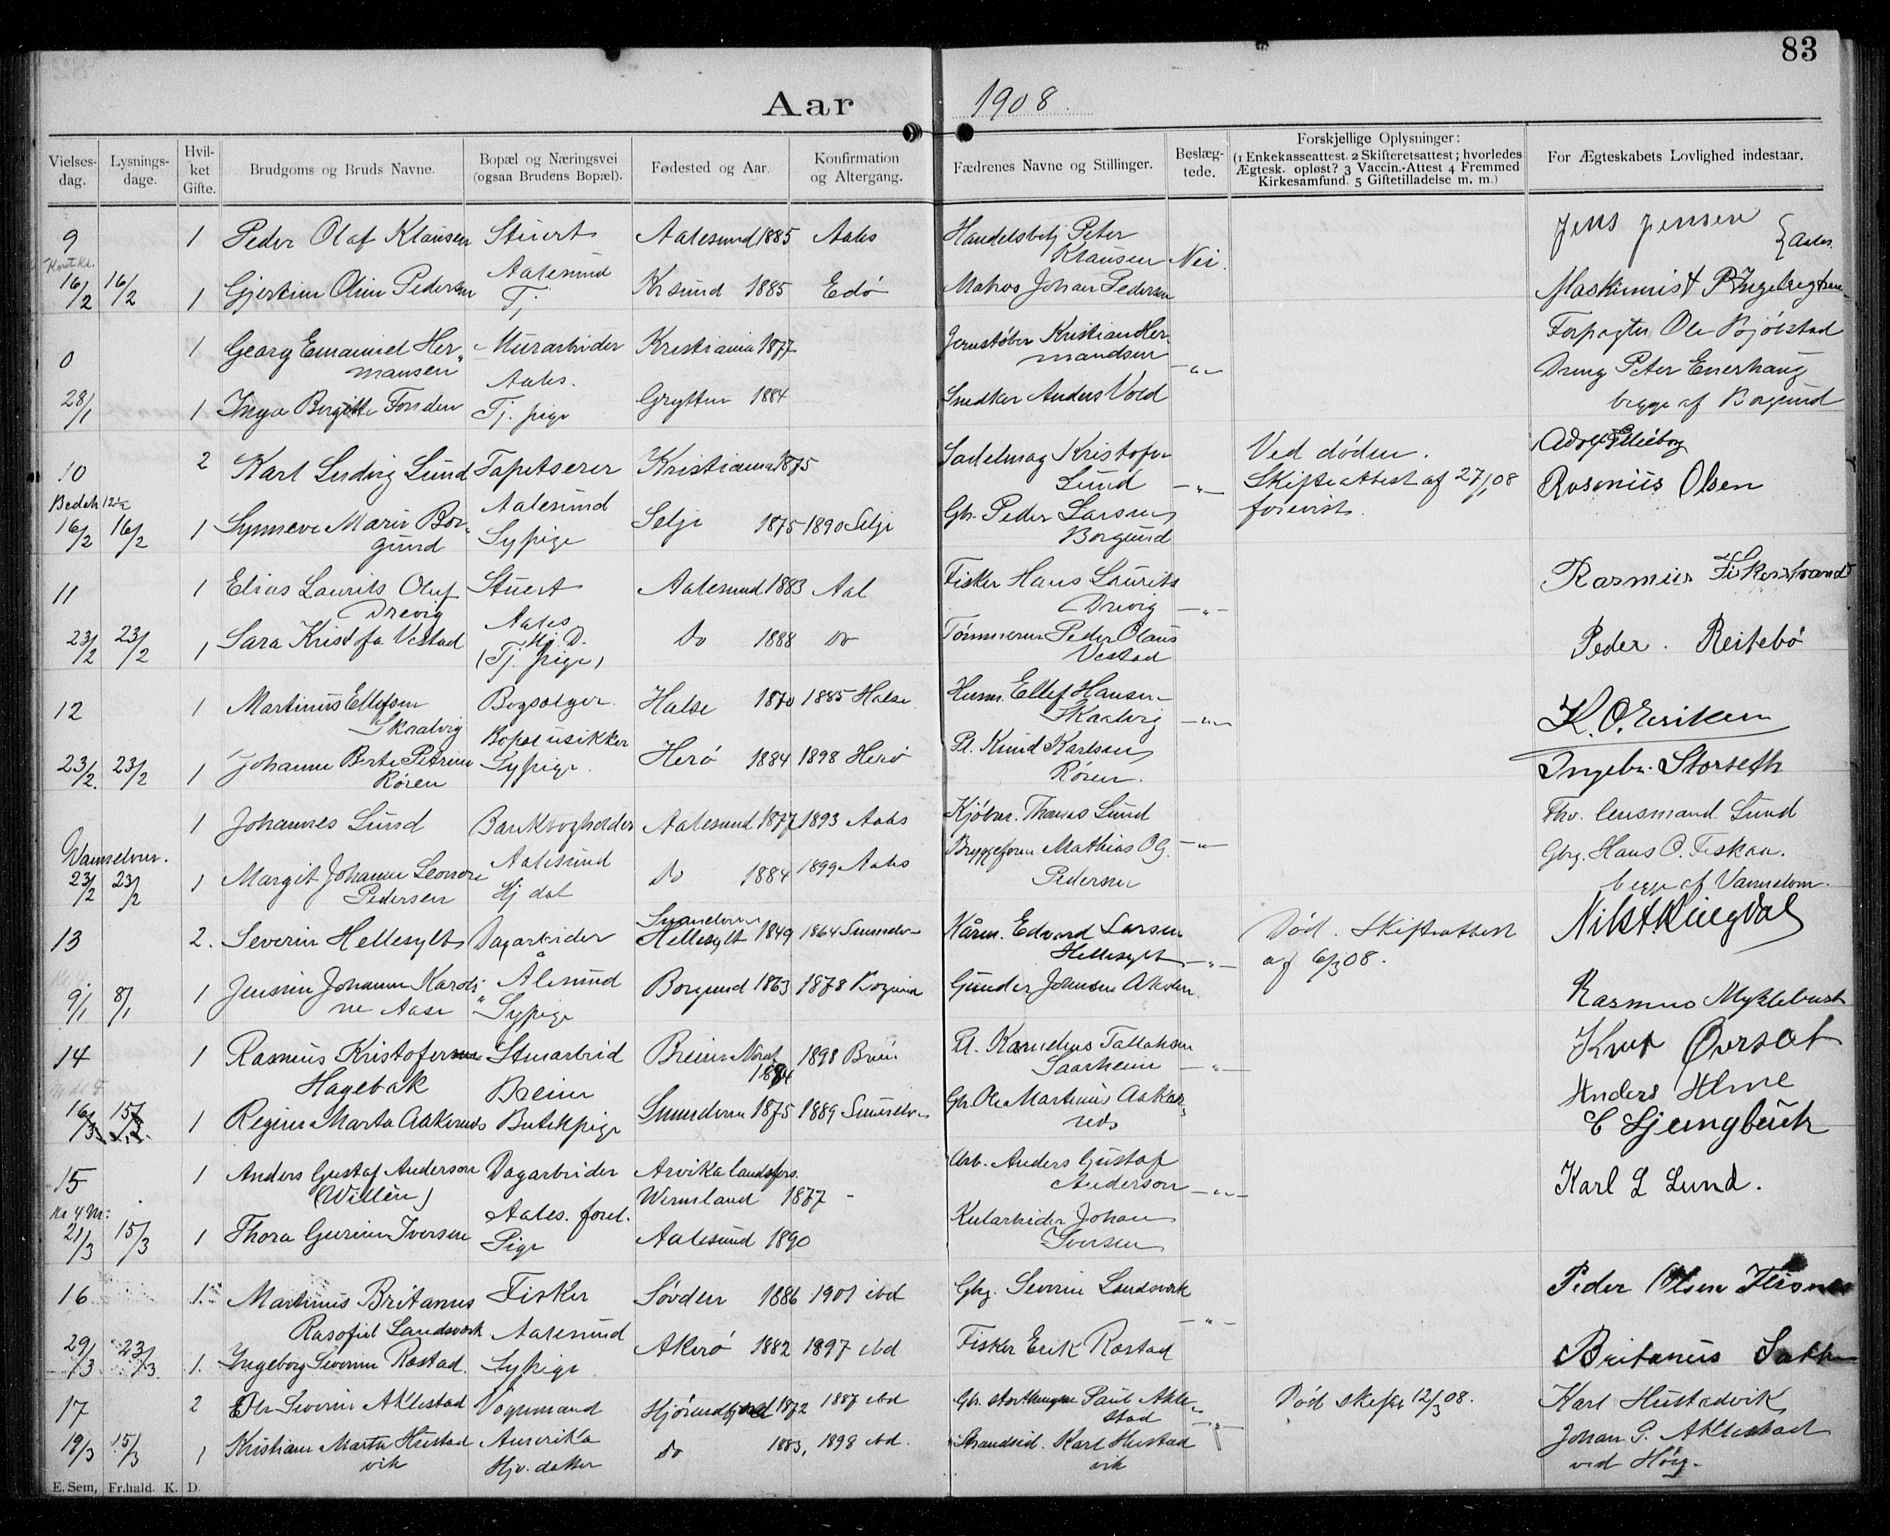 83
Aar 1908.
Vielses-dag. Lysnings-dage. Hvil-ket Gifte. Brudgoms og Bruds Navne. Bopæl og Næringsvei (ogsaa Brudens Bopæl). Fødested og Aar. Konfirmation og Altergang. Fædrenes Navne og Stillinger. Beslæg-tede. Forskjellige Oplysninger: (1 Enkekasseattest. 2 Skifteretsattest; hvorledes Ægtesk. opløst? 3 Vaccin.-Attest 4 Fremmed Kirkesamfund. 5 Giftetilladelse m. m.) For Ægteskabets Lovlighed indestaar.
9 1 Peder Olaf Klausen Stuert Aalesund 1885 Aales Handelsbetj Peter Jens Jensen
Aalesund Klausen Nei. Aales.
16/2 16/2 1 Gjertine Oline Pedersen Tj Krsund 1885 Edø Matros Johan Pedersen Maskinist P Ingebrigtsen
0 1 Georg Emanuel Her- Murarbeider Kristiania 1877 Jernstøber Kristian Her- Forpagter Ole Bjørstad
mansen Aales. mandsen -"- Dreng Peter Enerhaug
28/1 1 Inga Bergitte Fonden Tj. pige Grytten 1884 Snedker Anders Vold begge af Borgund
10 2 Karl Ludvig Lund Tapetserer Kristiania 1875 Sadelmag Kristofer Ved døden.
Aalesund Lund -"- Skifteattest af 27/1 08 Rasmus Olsen
16/2 16/2 1 Synneve Marie Bor- Sypige Selje 1875 1890 Selje Gbr. Peder Larsen forevist.
gund Borgund
11 1 Elias Laurits Oluf Stuert Aalesund 1883 Aal Fisker Hans Laurits Rasmus Fiskerstrand
Drevig Aales Drevig -"-
23/2 23/2 1 Sara Kristofa Vestad Hj. D. Do 1888 do Tømmerm Peder Olaus Peder Reitebø
(Tj. pige) Vestad
12 1 Martinus Ellefsen Bogsælger Halse 1870 1885 Halse Husm. Ellef Hansen K. O. Eriksen
Skaalvig Bopæl usikker Skaalvig -"-
23/2. 23/2 1 Johanne Berte Petrine Sypige. Herø 1884 1898 Herø Pl. Knud Karlsen Ingebr. Storseth
Røren Røren.
1 Johannes Lund Bankbogholder Aalesund 1877 1893 Aales Kjøbm. Thomas Lund Fhv. lensmand Lund
Vannelven. Aalesund Bryggeform Mathias Og. -"- Gbrg. Hans O. Fiskaa.
23/2 23/2 1 Margit Johanne Leonore Hj dat do 1884 1899 Aales Pedersen begge af Vannelven.
Pedersen
13 2. Severin Hellesylt Dagarbeider Sunnelven Hellesylt 1849 1864 Sunnelv- Kårm. Edvard Larsen Død. Skifteattest
Ålesund Hellesylt -"- af 6/3 08.
9/1 8/1 1 Jensine Johanne Karoli- Sypige Borgund 1863 1878 Borgund Gunder Johnsen Rasmus Myklebust
ne Aase
14 1 Rasmus Kristofersen Stuearbeid Breim Nordf 1884 1898 Breim Pl. Kornelius Tollaksen Knut Øvrsæt
Hagebak Breim Saarheim -"- Anders Hlne
16/3 15/3. 1 Regine Marta Aakernes Butikpige Sunnelven 1875 1889 Sunnelv- Gbr. Ole Martinus Aaker- E Ljungbück
nes
15 1 Anders Gustaf Anderson Dagarbeider Arvika landsfors. Arb. Anders Gustaf
(Willén) Aales. Wermland 1877 - Anderson -"- Karl L Lund.
Kl 4 M:
21/3 15/3 1 Thora Gurine Iversen Pige Aalesund 1890 Kularbeider Johan
Iversen
16 1. Martinus Britanus Fisker Søvden 1886 1901 ibd Gbrg. Severin Landsverk Peder Olsen
Rasofiel Landsverk Aalesund -"-
29/3 23/3. 1. Ingeborg Severine Rostad. Sypige Akerø 1882 1897 ibd Fisker Erik Rostad Britanus
17 2 Ole Severin Aklestad Vognmand Hjørundfjord 1872 1887 ibd Gbr. Stortingsm Paul Akle- Død skifte 12/3 08. Karl Hustadvik
Amerika stad -"- Johan P. Aklestad
19/3 15/3 1 Kristiane Marta Hustad Hjv. datter do 1883, 1898 ibd. Strandsid. Karl Hustad
vik vik
E. Sem, Fr.hald. K. D.